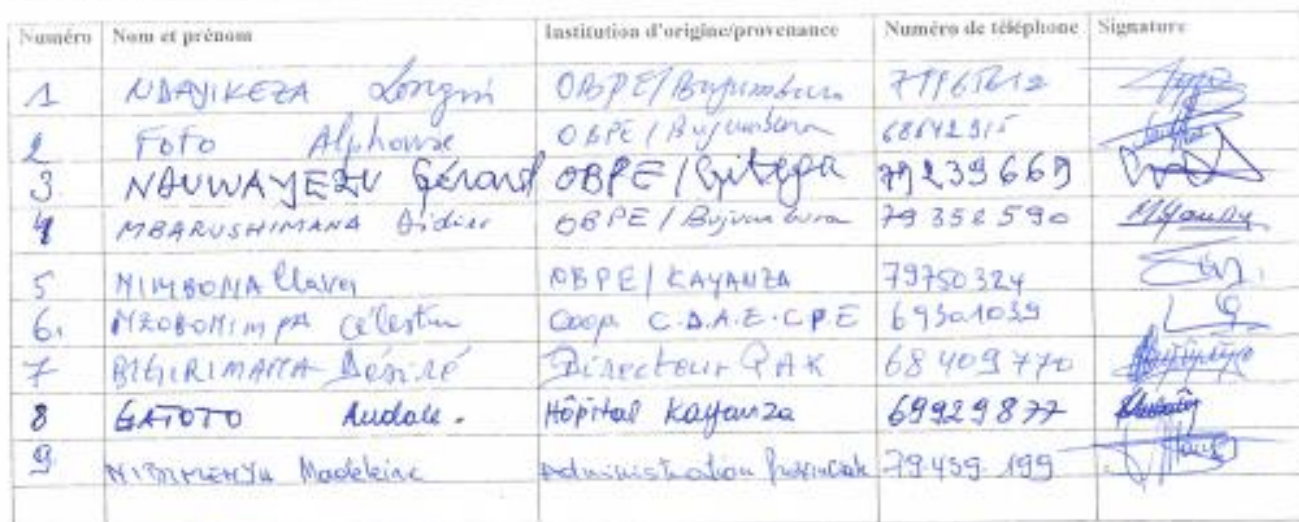 Numéro Nom et prénom Institution d'origine/provenance Numéro de téléphone Signature
1 NDAYIKEZA Longin OBPE/Bujumbura
2 FOFO Alphonse OBPE/Bujumbura 68642915
3. NAUWAYEZU Gérard OBPE/Gitega 79239669
4 MBARUSHIMANA Didier OBPE/Bujumbura 79352590
5 NIMBONA Claver OBPE/KAYANZA 79750324
6. NZOBONIMPA Célestin Coop C.D.A.E-CPE 69301039
7 BIGIRIMANA Désiré Directeur PAK 68409770
8 GATOTO Audace. Hôpital Kayanza 69929877
9 Madeleine Administration Provinciale 79.459.199